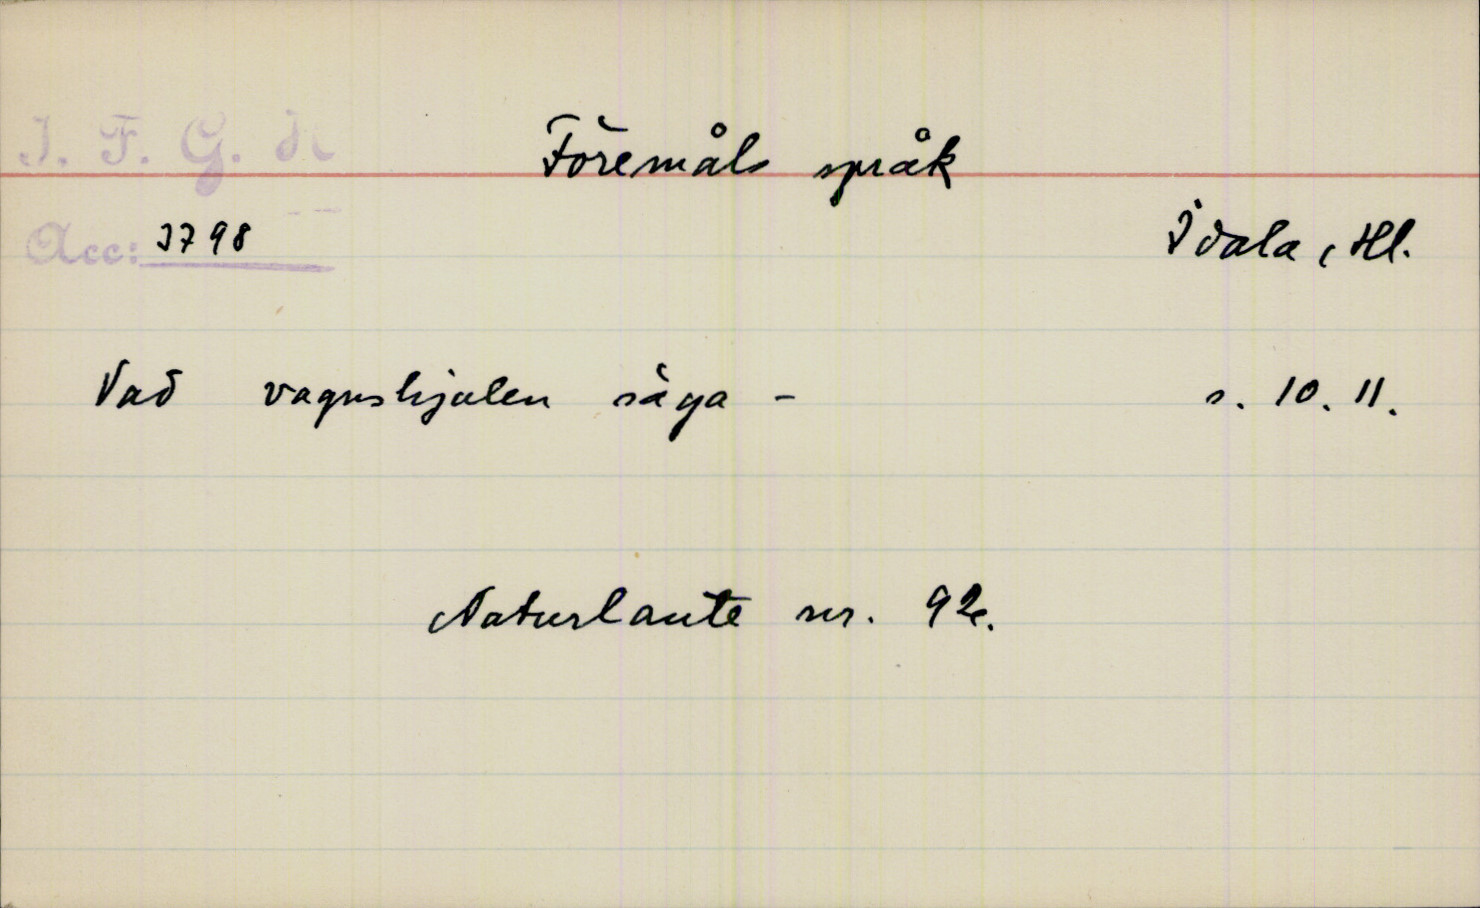 I. F. G. H
Föremåls språk
Acc: 3798
Idala, Hl.
Vad vagnshjulen säga - s. 10. 11.
Naturlaute nr. 92.